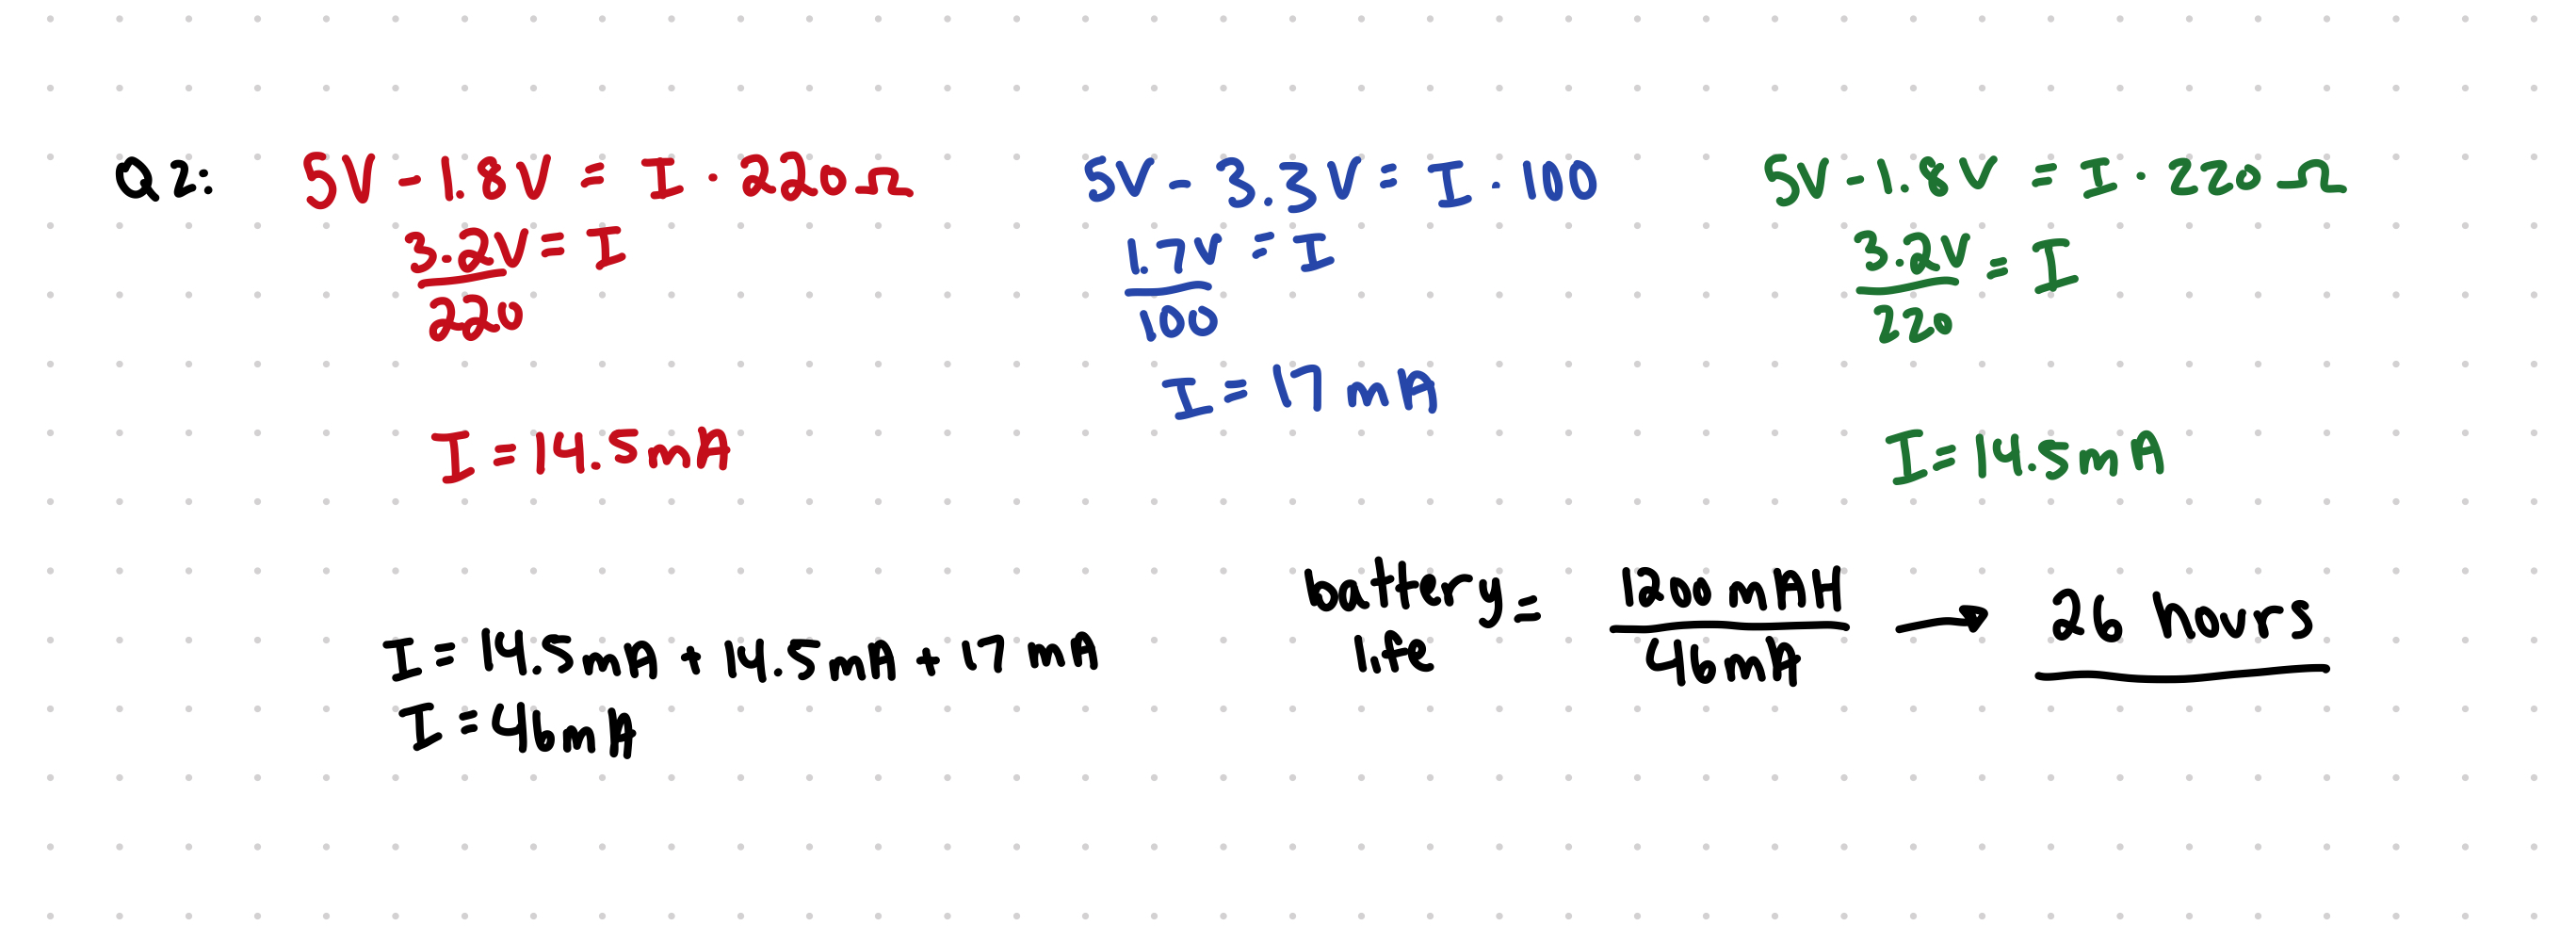 Q2:
5V - 1.8V = I · 220Ω
3.2V = I
220
I = 14.5mA
5V - 3.3V = I · 100
1.7V = I
100
I = 17mA
5V - 1.8V = I · 220Ω
3.2V = I
220
I = 14.5mA
I = 14.5mA + 14.5mA + 17mA
I = 46mA
battery =
life
1200 mAH
46mA
→ 26 hours